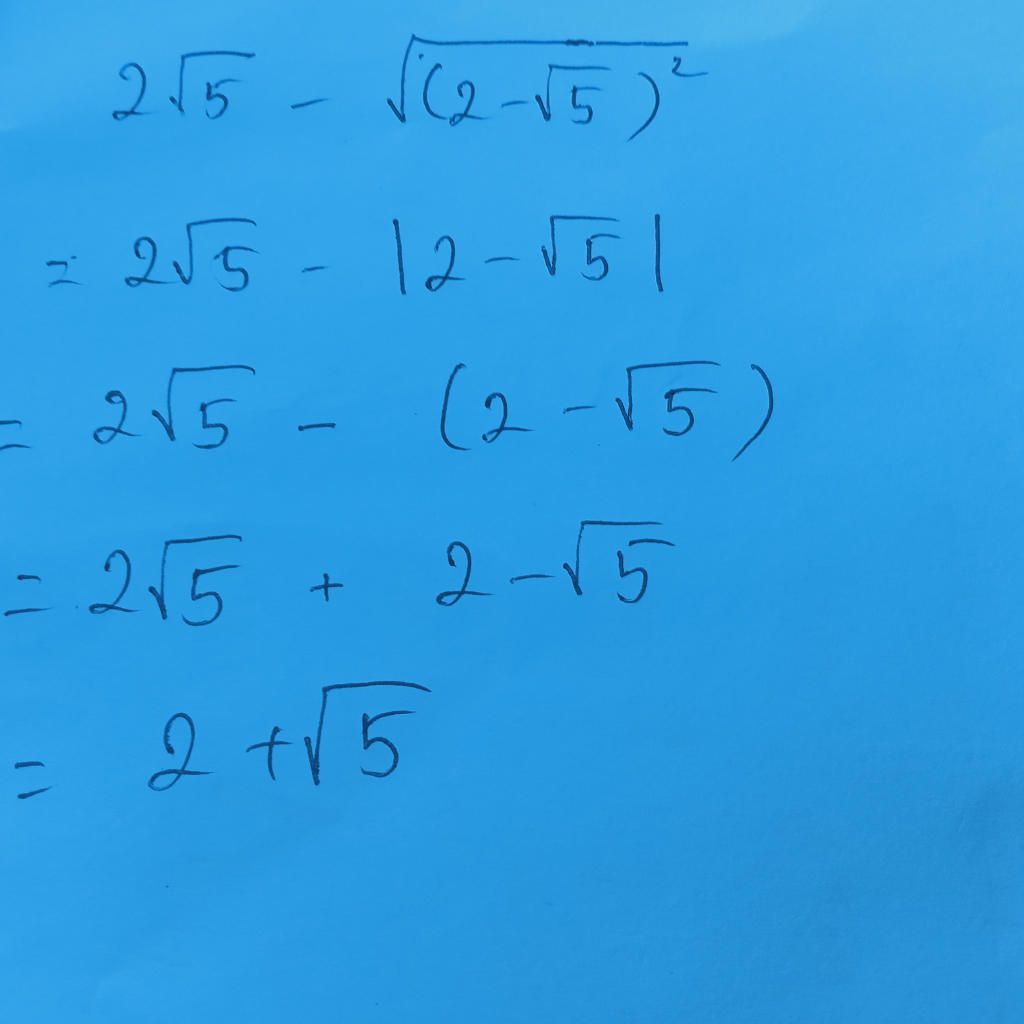 2√5 - √(2-√5)²
= 2√5 - |2-√5|
= 2√5 - (2-√5)
= 2√5 + 2-√5
= 2+√5